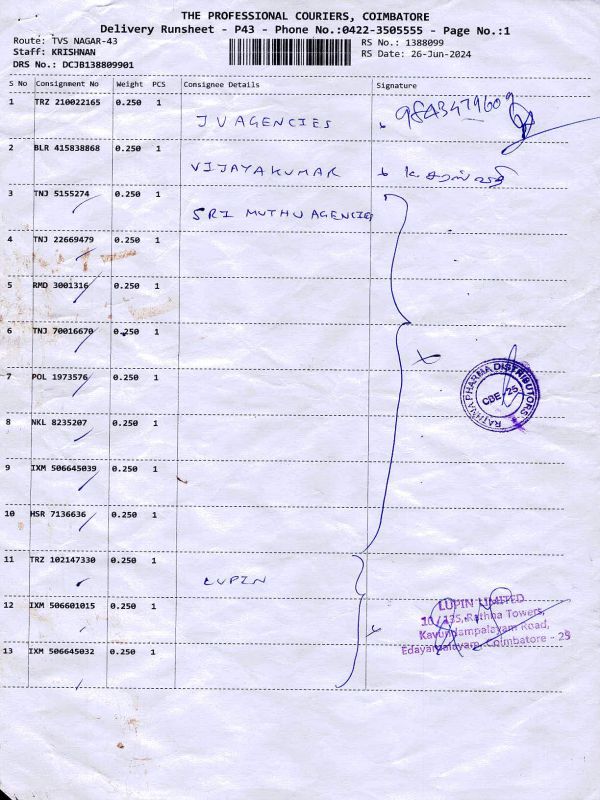 THE PROFESSIONAL COURIERS, COIMBATORE
Delivery Runsheet - P43 - Phone No.:0422-3505555 - Page No.:1
Route: TVS NAGAR-43
Staff: KRISHNAN
DRS No.: DCJB138809901
RS No.: 1388099
RS Date: 26-Jun-2024
S No Consignment No Weight PCS Consignee Details Signature
1 TRZ 210022165 0.250 1
JV AGENCIES
2 BLR 415838868 0.250 1
VIJAYAKUMAR
3 TNJ 5155274 0.250 1
SRI MUTHU AGENCIES
4 TNJ 22669479 0.250 1
5 RMD 3001316 0.250 1
6 TNJ 70016670 0.250 1
7 POL 1973576 0.250 1
8 NKL 8235207 0.250 1
9 IXM 506645039 0.250 1
10 HSR 7136636 0.250 1
RATHNA PHARMA DISTRIBUTORS
CBE-25
11 TRZ 102147330 0.250 1
LUPIN
12 IXM 506601015 0.250 1
13 IXM 506645032 0.250 1
LUPIN LIMITED
10 / 135, Rathna Towers,
Kavundampalayam Road,
Edayarpalayam, Coimbatore - 25